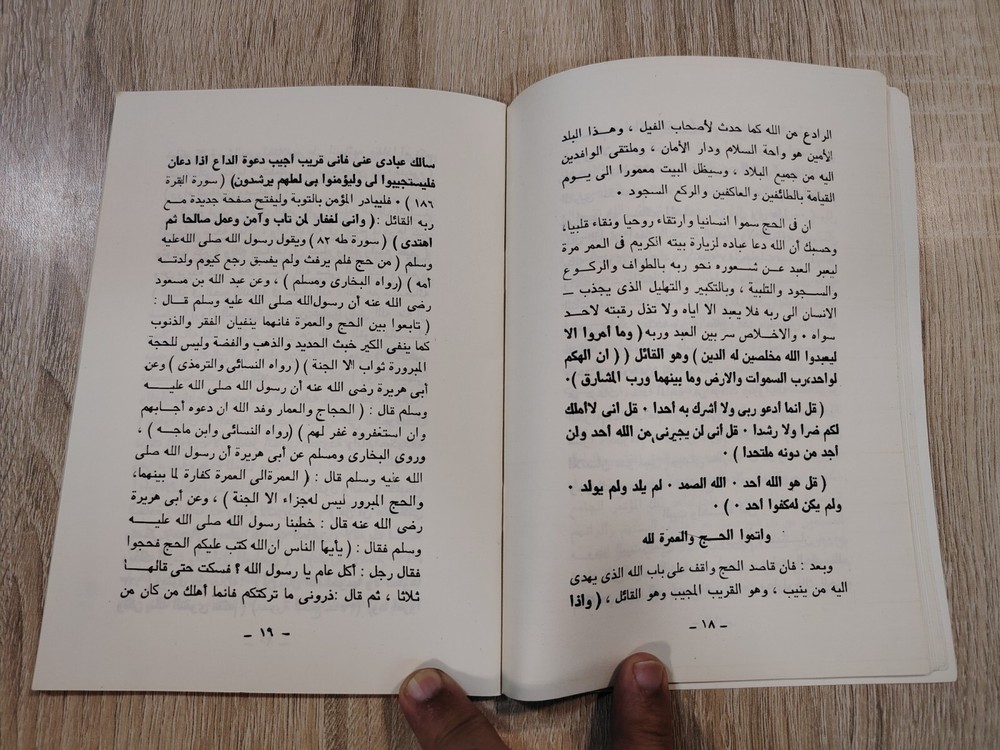 الرادع من الله كما حدث لأصحاب الفيل ، وهـذا البلد
الأمين هو واحة السلام ودار الأمان ، وملتقى الوافدين
اليه من جميع البلاد ، وسيظل البيت معمورا الى يــوم
القيامة بالطائفين والعاكفين والركع السجود ٠
ان فى الحج سموا انسانيا وارتقاء روحيا ونقاء قلبيا،
وحسبك أن الله دعا عباده لزيارة بيته الكريم فى العمر مرة
ليعبر العبد عـن شـعوره نحو ربه بالطواف والركـوع
والسـجود والتلبية ، وبالتكبير والتهليل الذى يجذب ــ
الانسان الى ربه فلا يعبد الا اياه ولا تذل رقبته لاحـد
سواه ٠ والاخلاص سر بين العبد وربه ( وما أمروا الا
ليعبدوا الله مخلصين له الدين ) وهو القائل ( ( ان الهكم
لواحد،رب السموات والارض وما بينهما ورب المشارق )٠
( قل انما أدعو ربى ولا أشرك به أحدا ٠ قل انى لاأملك
لكم ضرا ولا رشدا ٠ قل أنى لن يجيرنى من الله أحد ولن
أجد من دونه ملتحدا ) ٠
( قل هو الله أحد ٠ الله الصمد ٠ لم يلد ولم يولد ٠
ولم يكن له كفوا أحد ٠ ) ٠
واتموا الحــج والعمرة لله
وبعد : فان قاصد الحج واقف على باب الله الذى يهدى
اليه من ينيب ، وهو القريب المجيب وهو القائل ، ( واذا
ـ ١٨ ـ
سالك عبادى عنى فانى قريب أجيب دعوة الداع اذا دعان
فليستجيبوا لى وليؤمنوا بى لعلهم يرشدون) ( سورة القرة
١٨٦ ) ٠ فليبادر المؤمن بالتوبة وليفتح صفحة جديدة مـع
ربه القائل :( وانى لغفار لمن تاب وآمن وعمل صالحا ثم
اهتدى ) ( سورة طه ٨٢ ) ويقول رسول الله صلى الله عليه
وسلم ( من حج فلم يرفث ولم يفسق رجع كيوم ولدتــه
أمه ) (رواه البخارى ومسلم ) ، وعن عبد الله بن مسعود
رضى الله عنه أن رسول الله صلى الله عليه وسلم قــال :
( تابعوا بين الحج والعمرة فانهما ينفيان الفقر والذنوب
كما ينفى الكير خبث الحديد والذهب والفضة وليس للحجة
المبرورة ثواب الا الجنة ) ( رواه النسائى والترمذى ) وعن
أبى هريرة رضى الله عنه أن رسول الله صلى الله عليــــه
وسلم قال : ( الحجاج والعمار وفد الله ان دعوه أجـابهم
وان استغفروه غفر لهم ) (رواه النسائى وابن ماجــه ) ،
وروى البخارى ومسلم عن أبى هريرة أن رسول الله صلى
الله عليه وسلم قال : ( العمرة الى العمرة كفارة لما بينهما،
والحج المبرور ليس له جزاء الا الجنة ) ، وعن أبى هريرة
رضى الله عنه قال : خطبنا رسول الله صلى الله عليـــــه
وسلم فقال : ( يأيها الناس ان الله كتب عليكم الحج فحجوا
فقال رجل : أكل عام يا رسول الله ؟ فسكت حتى قالهــا
ثلاثا ، ثم قال :ذرونى ما تركتكم فانما أهلك من كان من
ـ ١٩ ـ